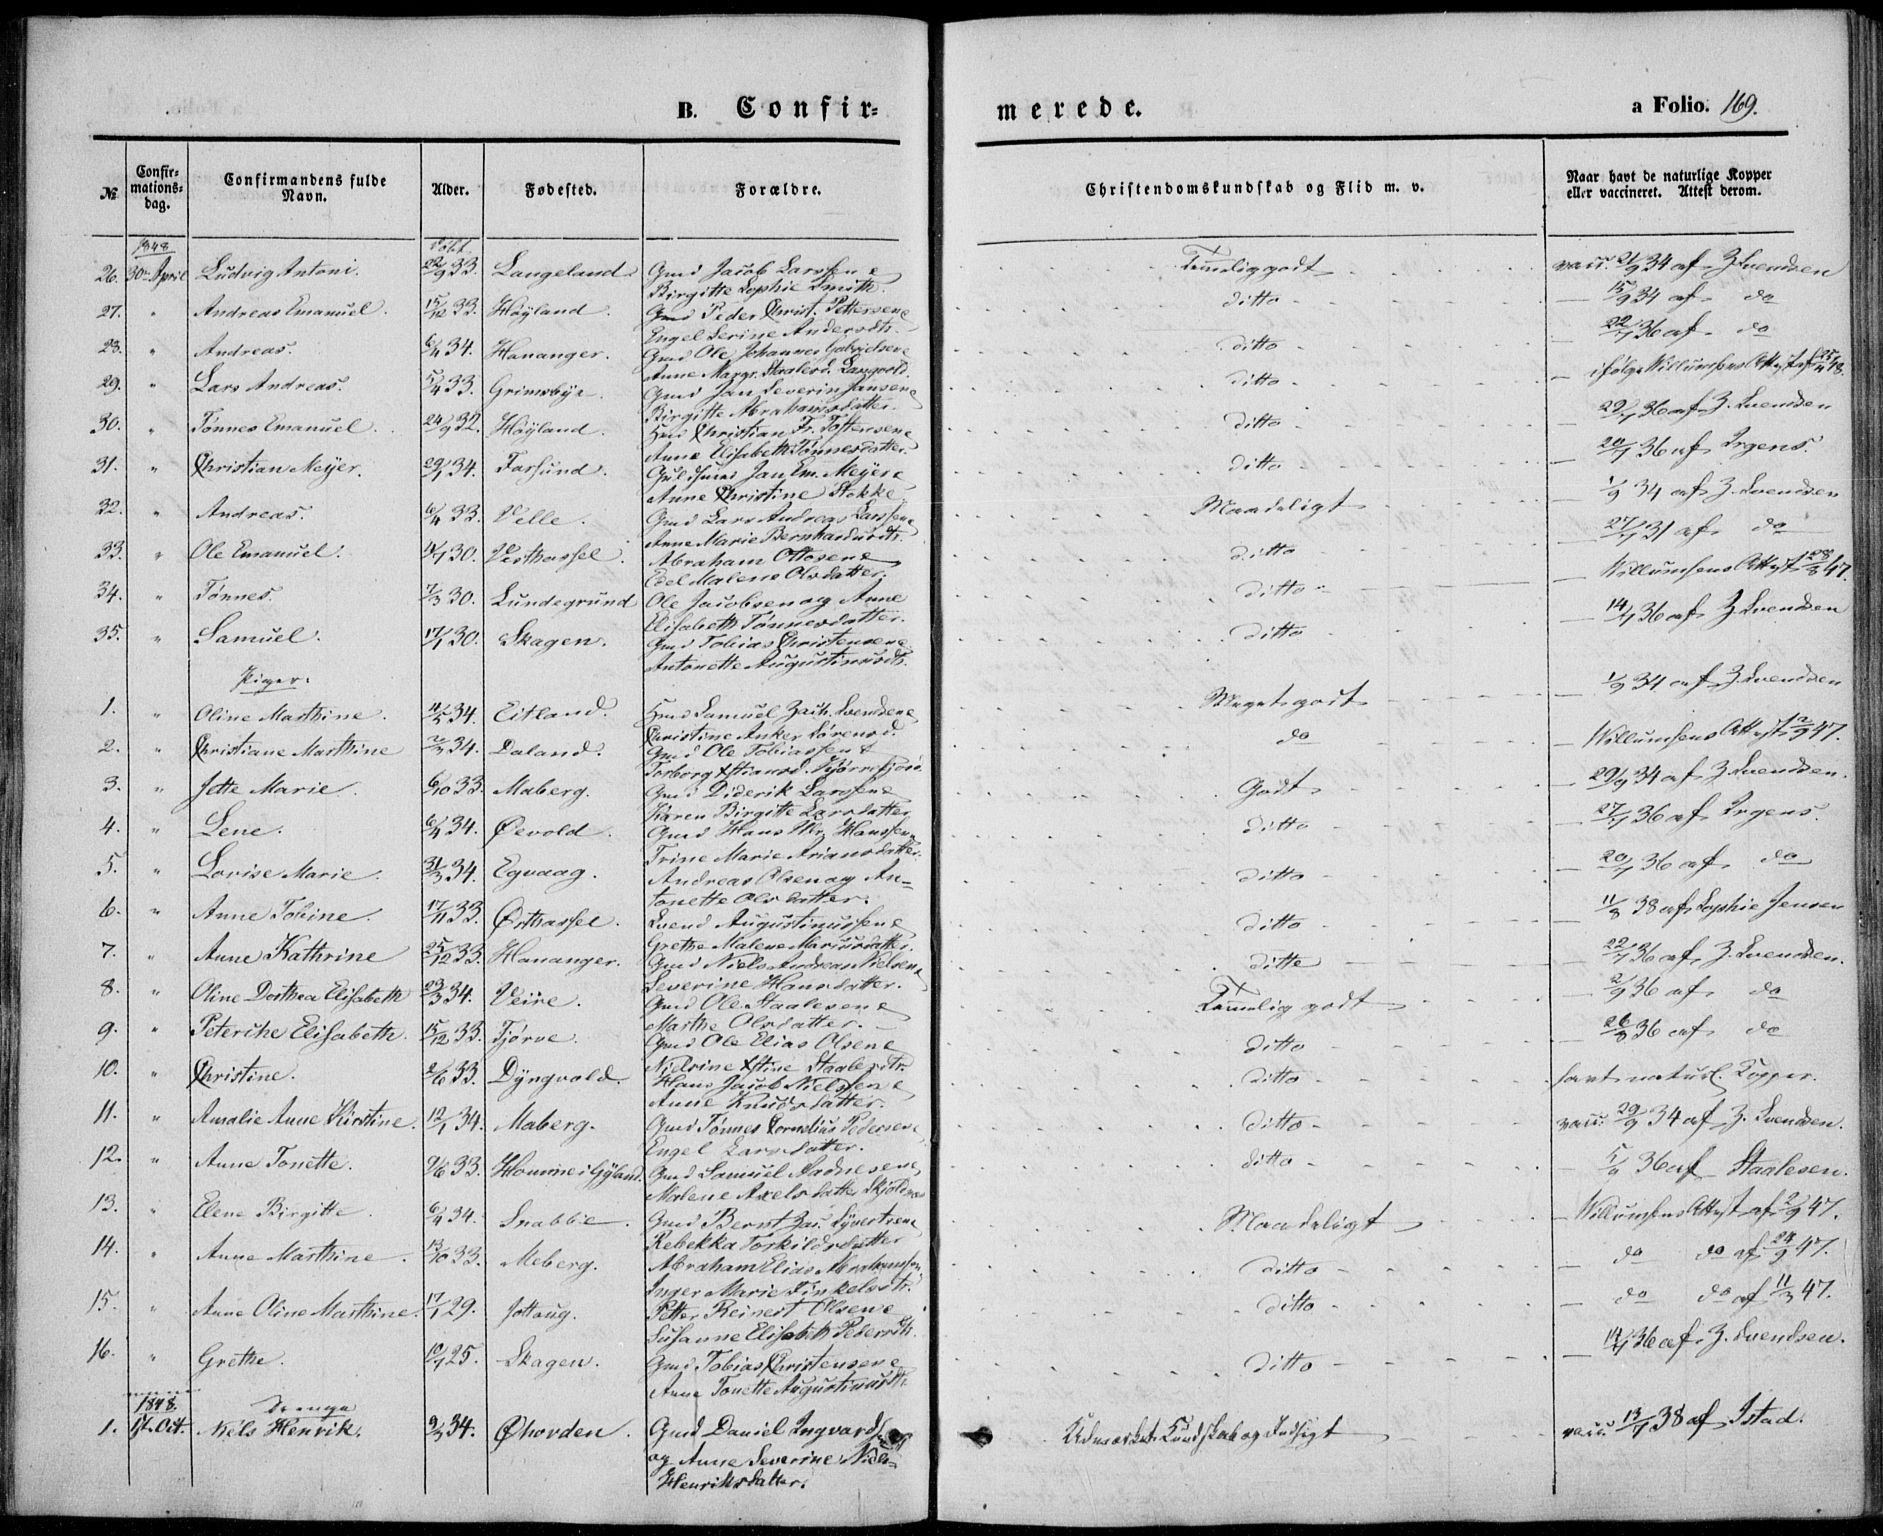 B. Confir-
merede.
a Folio. 169.
No
Confir-
mations-
dag.
Confirmandens fulde
Navn.
Alder.
Fødested.
Forældre.
Christendomskundskab og Flid m. v.
Naar havt de naturlige Kopper
eller vaccineret. Attest derom.
1848 født
26. 30te April Ludvig Antoni. 22/9 33. Langeland Gmd Jacob Larssen &
Birgitte Sophie Smith. Temelig godt vacc. 21/9 34 af Z Svendsen
27. " Andreas Emanuel. 15/12 33. Høyland. Gmd Peder Christ. Pettersen &
Engel Serine Andersdtr. ditto — 15/9 34 af do
28. " Andreas. 6/4 34. Hananger. Gmd Ole Johannes Gabrielsen &
Anne Margr. Staalesd. Langvold. ditto — 22/7 36 af do
29. " Lars Andreas. 5/4 33. Grimsbye. Gmd Jan Severin Jansen &
Birgitte Abrahamsdatter. ditto — ifølge Willumsens Attest af 25/4 48.
30. " Tønnes Emanuel. 24/9 32. Høyland. Hmd Christian Fr. Toftensen &
Anne Elisabeth Tønnesdatter. ditto — 22/7 36 af Z. Svendsen
31. " Christian Meyer. 29/1 34. Farsund. Guldsmed Jan Em. Meyer &
Anne Christine Stokke. ditto — 20/7 36 af Irgens.
32. " Andreas. 6/4 33. Velle. Gmd Lars Andreas Larssen &
Anne Marie Bernhardusdtr. Maadeligt — 1/9 34 af Z. Svendsen
33. " Ole Emanuel. 4/1 30. Vesthassel. Abraham Ottosen &
Edel Malene Olsdatter. ditto — 27/7 31 af do
34. " Tønnes. 7/3 30. Lundegrund Ole Jacobsen og Anne
Elisabeth Tønnesdatter. ditto — Willumsens Attest 28/8 47.
35. " Samuel. 17/1 30. Skagen. Gmd Tobias Christensen &
Antonette Augustinusdtr. ditto — 14/7 36 af Z Svendsen
Piger.
1. " Oline Marthine. 11/5 34. Eitland. Hmd Samuel Zach. Svendsen &
Christine Anker Sørensd. Meget godt — 1/9 34 af Z. Svendsen
2. " Christiane Marthine 2/3 34. Daland. Gmd Ole Tobiassen &
Torborg Xstiansd. do — Willumsens Attest 2/9 47.
3. " Jette Marie. 6/10 33. Maberg. Gmd Diderik Larssen &
Karen Birgitte Larsdatter Godt — 29/9 34 af Z. Svendsen.
4. " Lene. 6/4 34. Øevold. Gmd Hans Mr. Hanssen &
Trine Marie Ariansdatter. ditto — 27/7 36 af Irgens.
5. " Lovise Marie. 31/3 34. Egvaag. Andreas Olsen og An-
tonette Olsdatter. ditto — 20/7 36 af do
6. " Anne Tobine. 17/11 33. Østhassel. Svend Augustinussen &
Grethe Malene Mariusdatter. ditto — 11/8 38 af Sophie Jensen
7. " Anne Kathrine 25/12 33. Hananger. Gmd Niels Andreas Nielsen &
Severine Hansdatter. ditto — 22/7 36 af Z. Svendsen.
8. " Oline Dorthea Elisabeth 23/3 34. Veire. Gmd Ole Staalesen &
Marthe Olsdatter. Temelig godt — 2/9 36 af do
9. " Peterike Elisabeth. 15/12 33. Fjørve. Gmd Ole Elias Olsen &
Nielsine Xstine Staalesdtr. ditto — 26/8 36 af do
10. " Christine. 2/6 33. Dyngvold. Hans Jacob Nielssen &
Anne Knudsdatter. ditto havt naturl. Kopper.
11. " Amalie Anne Kirstine. 12/1 34. Maberg. Gmd Tønnes Cornelius Pedersen &
Engel Larsdatter. ditto vacc. 29/9 34 af Z. Svendsen.
12. " Anne Tonette. 9/6 33. Houmme i Gyland. Gmd Samuel Aadnesen &
Malene Axelsdatter ditto — 5/9 36 af Staalesen.
13. " Elene Birgitte. 6/4 34. Snabbe. Gmd Bernt Jac. Syvertsen &
Rebekka Torkildsdatter Maadeligt — Willumsens Attest af 2/9 47.
14. " Anne Marthine. 13/10 33. Meberg. Abraham Elias Abrahamsen
Inger Marie Finkelsdtr. ditto — do do af 24/9 47.
15. " Anne Oline Marthine. 17/1 29. Jottoug. Petter Reinert Olsen &
Susanne Elisabeth Pedersdtr. ditto — do do af 11/3 47.
16. " Grethe. 10/7 25. Skagen. Gmd Tobias Christensen &
Anne Tonette Augustinusdtr. ditto — 14/7 36 af Z. Svendsen.
1848 Drenge
1. 1st Oct. Niels Henrik. 9/3 34. Øhovden. Gmd Daniel Ingvardsen
og Anne Severine Niels
Henriksdatter. Udmærket Kundskab og Indsigt vacc. 13/7 38 af Istad.